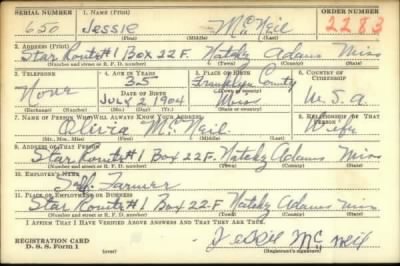 SERIAL NUMBER 1. NAME (Print) ORDER NUMBER
650 Jessie McNeil 2283
(First) (Middle) (Last)
2. ADDRESS (Print)
Star Route #1 Box 22F. Natchz Adams Miss
(Number and street or R. F. D. number) (Town) (County) (State)
3. TELEPHONE 4. AGE IN YEARS 5. PLACE OF BIRTH 6. COUNTRY OF CITIZENSHIP
None 35 Franklyn County U.S.A.
DATE OF BIRTH (Town or county)
July 2 1904 Miss
(Exchange) (Number) (Mo.) (Day) (Yr.) (State or country)
7. NAME OF PERSON WHO WILL ALWAYS KNOW YOUR ADDRESS 8. RELATIONSHIP OF THAT PERSON
Olivia McNeil Wife
(Mr., Mrs., Miss) (First) (Middle) (Last)
9. ADDRESS OF THAT PERSON
Star Route #1 Box 22F. Natchz Adams Miss
(Number and street or R. F. D. number) (Town) (County) (State)
10. EMPLOYER'S NAME
Self. Farmer
11. PLACE OF EMPLOYMENT OR BUSINESS
Star Route #1 Box 22F Natchz Adams Miss
(Number and street or R. F. D. number) (Town) (County) (State)
I AFFIRM THAT I HAVE VERIFIED ABOVE ANSWERS AND THAT THEY ARE TRUE.
REGISTRATION CARD
D. S. S. Form 1 (over) Jessie McNeil
(Registrant's signature)